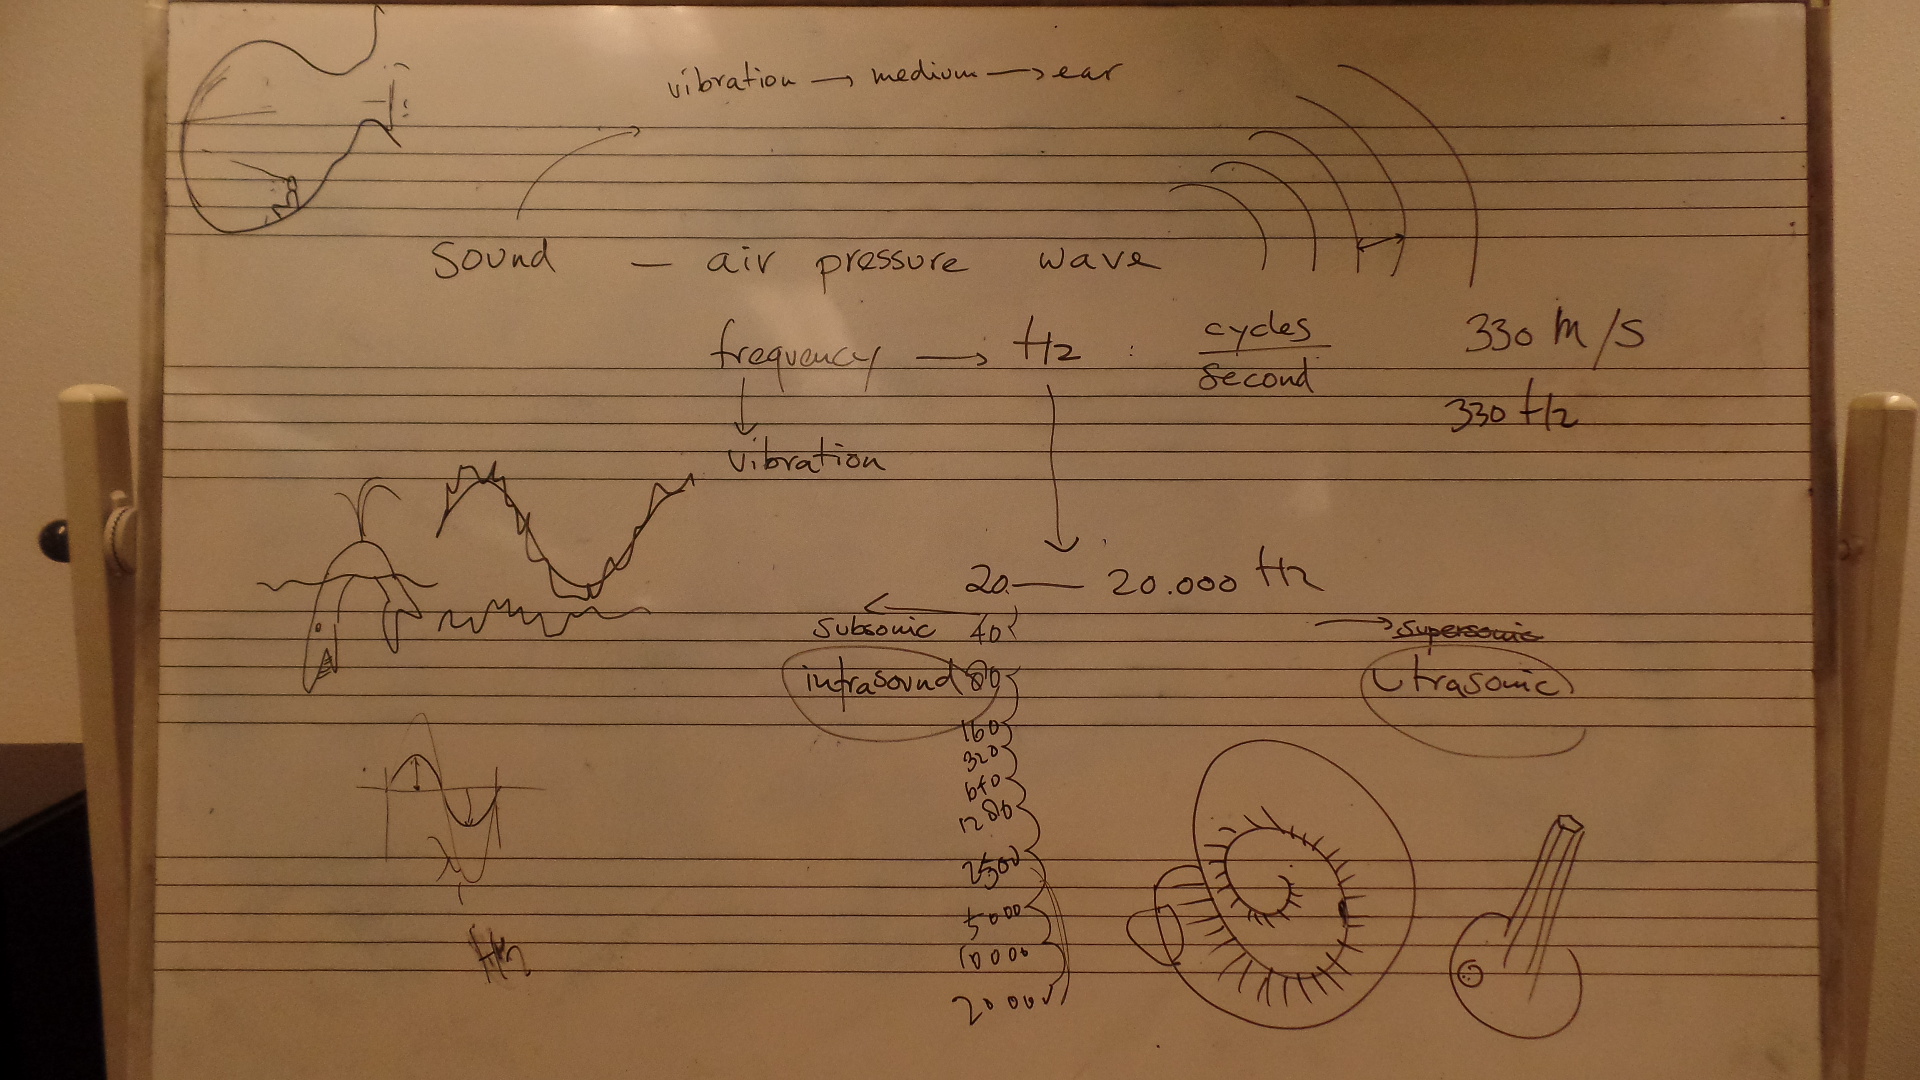 vibration → medium → ear
Sound — air pressure wave
frequency → Hz : cycles / second
330 m/s
330 Hz
vibration
20 — 20.000 Hz
subsonic 40
supersonic
infrasound 80
Utrasonic
160
320
640
1280
2500
5000
10000
20000
Hz